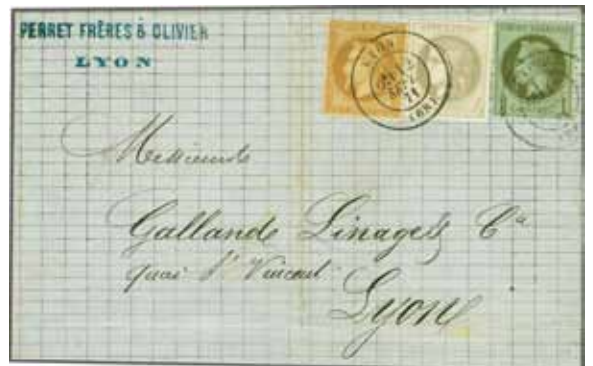 PERRET FRÈRES & OLIVIER
LYON
LYON
71
Messieurs
Gallande Linages & Cie
quai St Vincent
Lyon